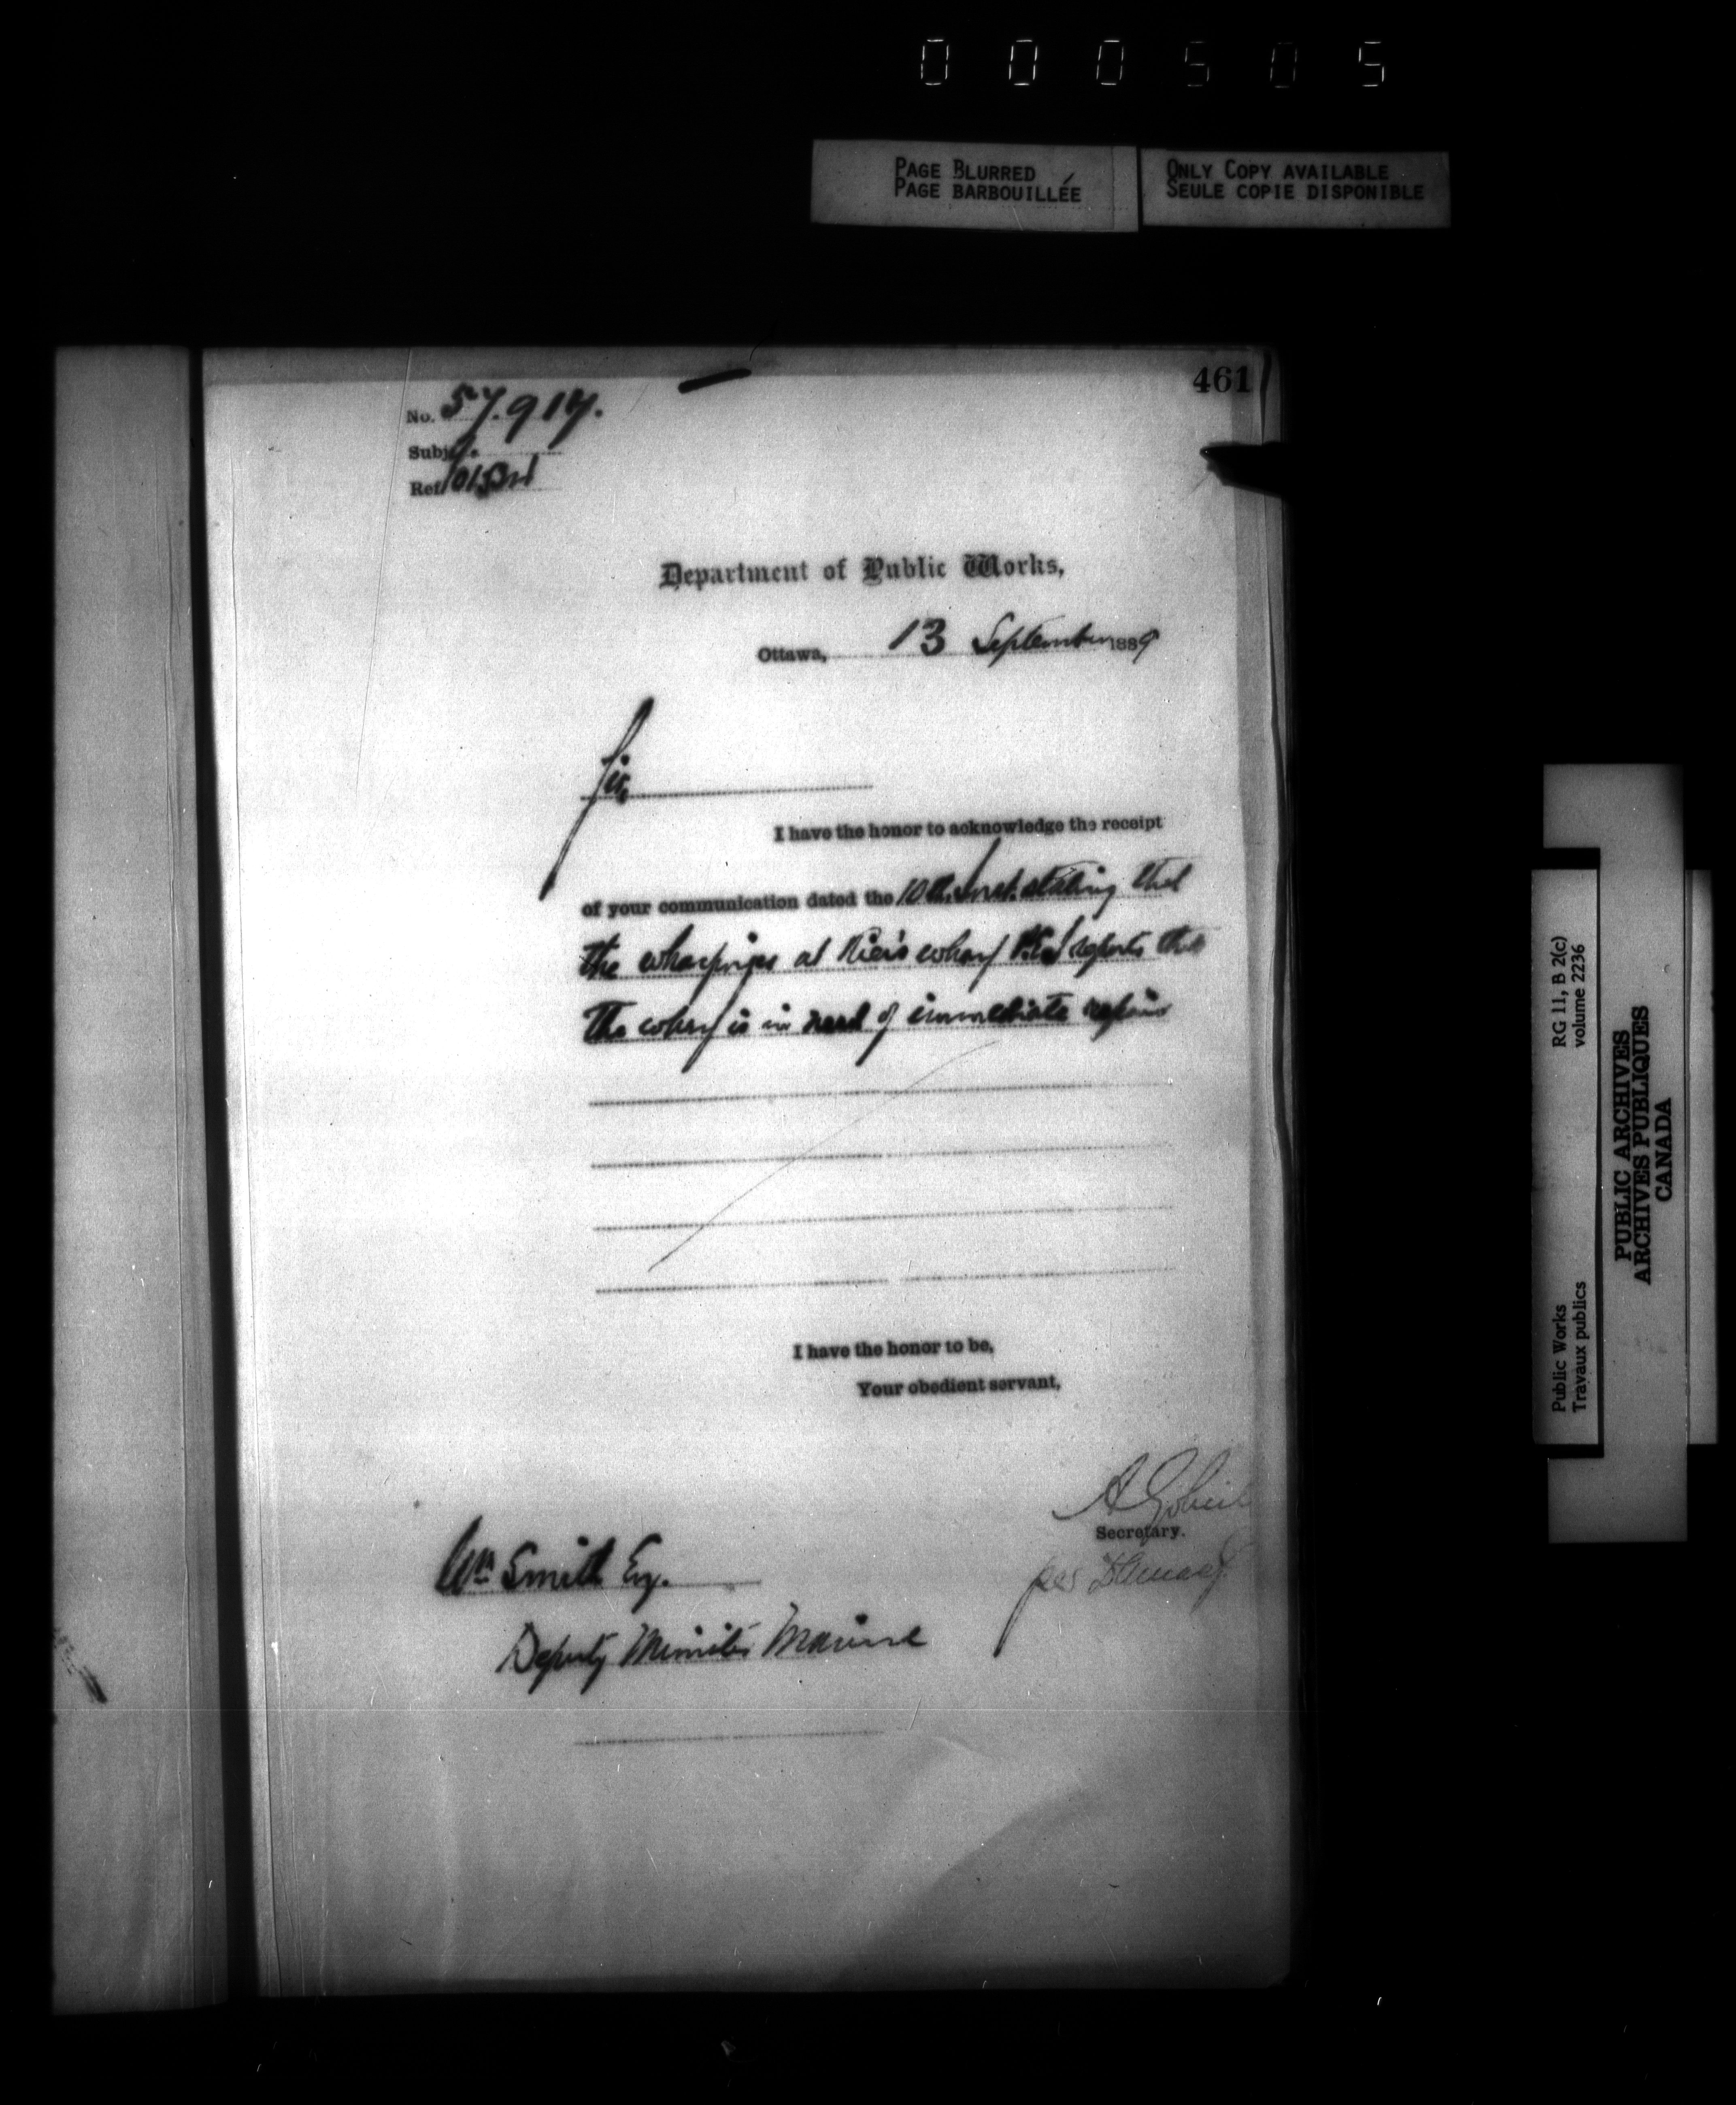 000505
PAGE BLURRED
PAGE BARBOUILLÉE
ONLY COPY AVAILABLE
SEULE COPIE DISPONIBLE
461
No. 57.914.
Subj.
Ref. 101531
Department of Public Works,
Ottawa, 13 September 1889
Sir,
I have the honor to acknowledge the receipt
of your communication dated the 10th. Inst. stating that
the wharfinger at wharf reports that
the wharf is in need of immediate repair
I have the honor to be,
Your obedient servant,
A Gobeil
Secretary.
per
Wm Smith Esq.
Deputy Minister Marine
Public Works
Travaux publics
RG 11, B 2(c)
volume 2236
PUBLIC ARCHIVES
ARCHIVES PUBLIQUES
CANADA